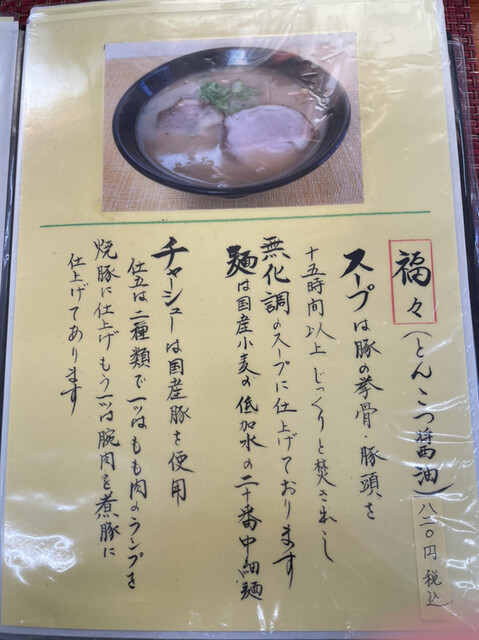 福々（とんこつ醤油）八二〇円税込
スープは豚の拳骨・豚頭を
十五時間以上じっくりと焚きだし
無化調のスープに仕上げております
麺は国産小麦の低加水の二十番中細麺
チャーシューは国産豚を使用
仕立は二種類で一ツはもも肉のランプを
焼豚に仕上げもう一ツは腕肉を煮豚に
仕上げてあります